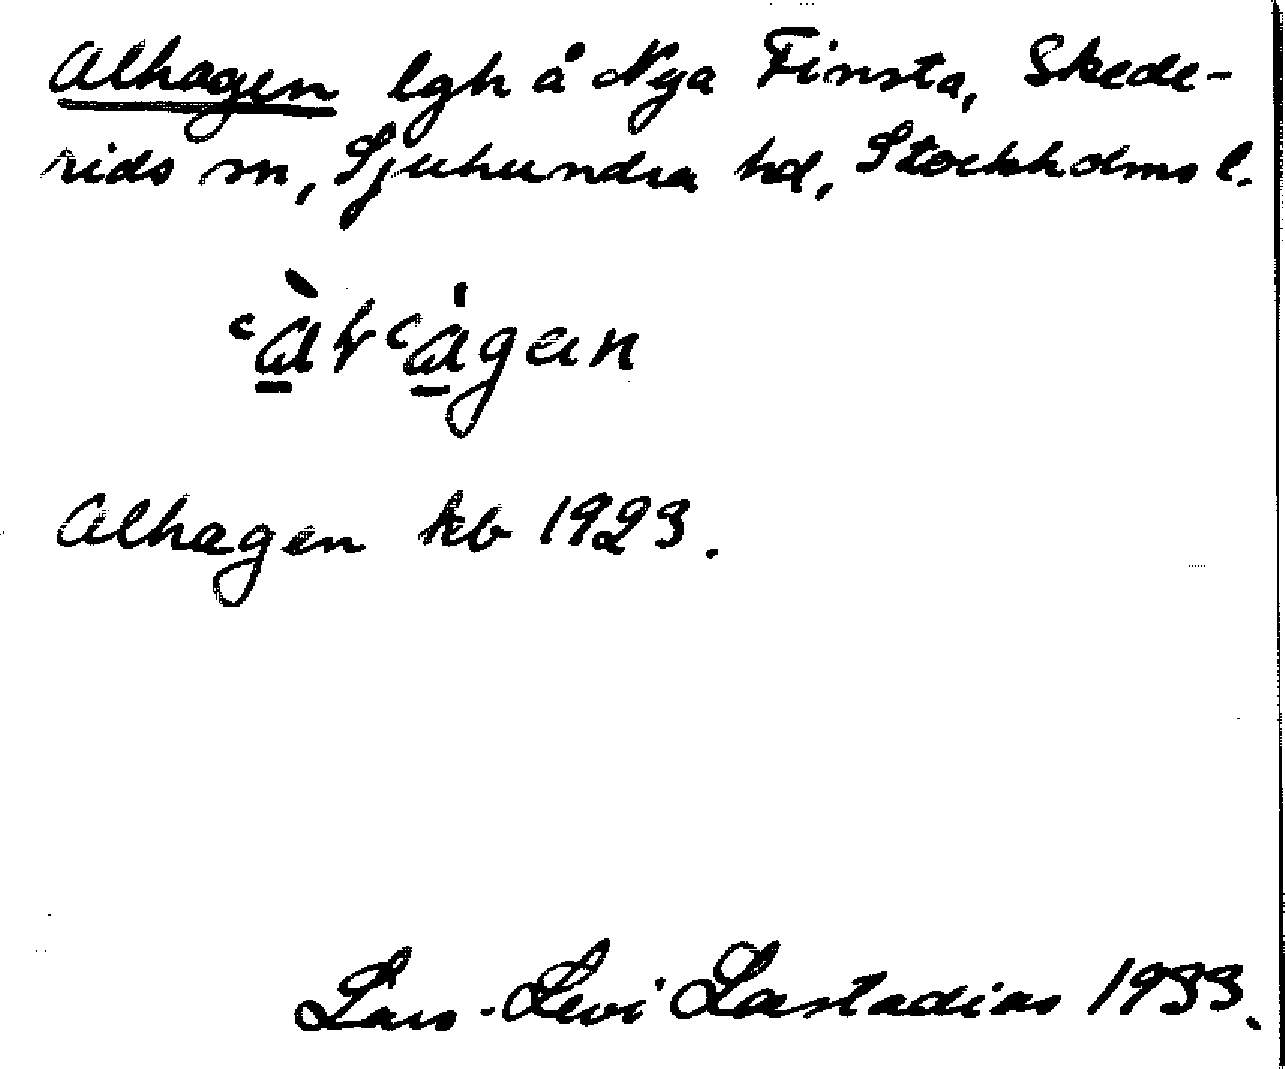 Alhagen lgh å Nya Finsta, Skede-
rids sn, Sjuhundra hd, Stockholms l.
Alhagen kb 1923.
Lars-Levi Læstadius 1933.